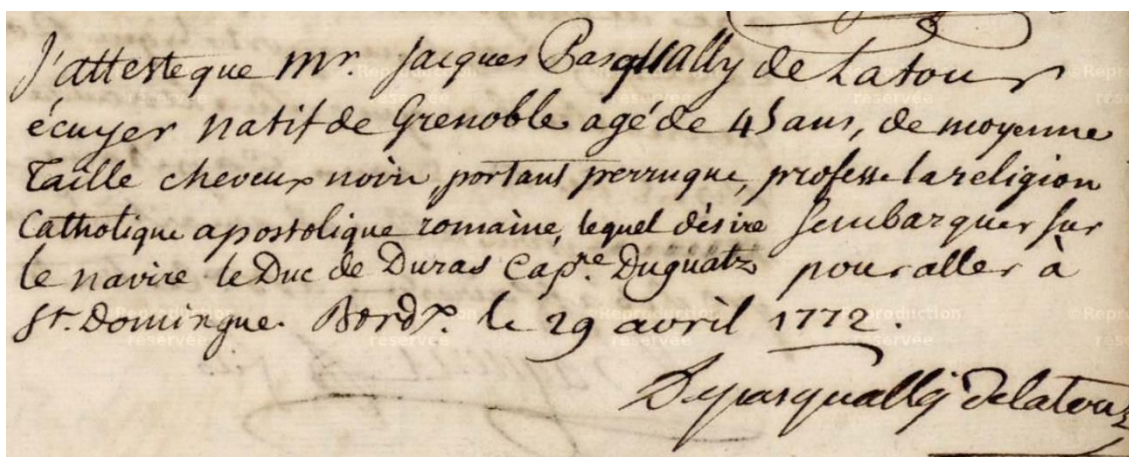 J'atteste que mr. Jacques Pasqually de Latour
écuyer natif de Grenoble agé de 45 ans, de moyenne
Taille cheveux noirs, portant perruque, professe la religion
Catholique apostolique romaine, lequel désire s'embarquer sur
le navire le Duc de Duras Capne. Duguatz pour aller à
St. Domingue. Bordx. le 29 avril 1772.
Depasqually Delatour
Reproduction réservée